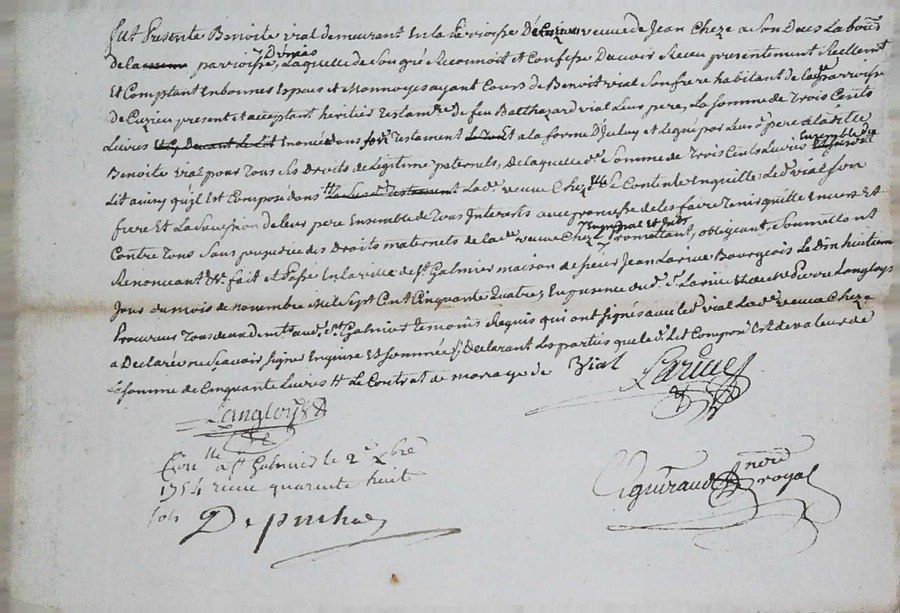 fut presente Benoite vial demeurant En la parroisse De Cuzieu veuve de Jean Cheze a Son Deces Laboure
de la parroisse D'unias, Laquelle de Son gré Reconnoit et Confesse D'avoir Receu presentement Reellemt
Et Comptant En bonnes Especes et Monnoyes ayant Cours de Benoit vial Son frere habitant de lade parroisse
de Cuzieu present et acceptant heritier Testamre de feu Balthazard vial Leur pere, La Somme de Trois Cents
Livres En Son Testament Et a la forme D'iceluy et legué par leur d. pere a lade
Benoite vial pour Tous Ses Droits de Legitime paternels, De laquelle de Somme de Trois Cents Livres Ensemble du
Lit ainsy qu'il Est Composé dans Lade veuve Cheze Se Contente En quitte Led. vial Son
frere Et La Succession de leur pere Ensemble de Tous Interets avec promesse de les faire Tenir quitte Envers Et
Contre Tous Sans prejudice des Droits maternels de lade veuve Cheze En principal et Intts promettant, obligeant, Soumettant
Renonceant &c. fait et passé En la ville de St. Galmier maison de Sieur Jean Larive Bourgeois Le Dix huitieme
Jour du mois de novembre Mil Sept Cent Cinquante Quatre, En presence du d. Sr. Larive et de Me. Pierre Langloys
Procureur Tous deux Demts aud. St. Galmier temoins Requis qui ont Signés avec led. vial Lade veuve Cheze
a Declaré ne Sçavoir Signer Enquise Et Sommée, Declarant Les parties que le d. Lit Composé Est de valeur de
La Somme de Cinquante Livres Le Contrat de mariage de Vial Larive
Langloys
Conlle a St Galmier le 2e Xbre
1754 receu quarente huit
sols
Cigniraud nore royal